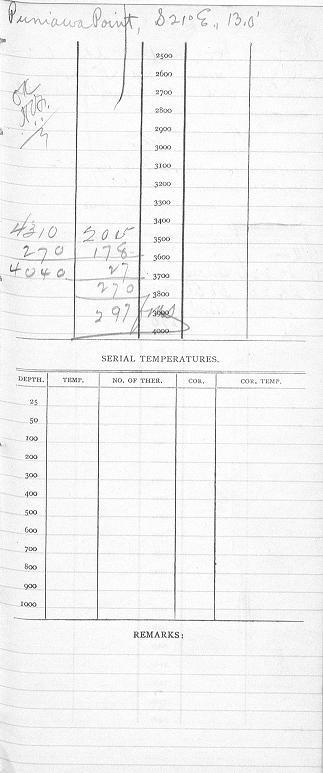 Puniawa Point, S 21° E., 13.0'
2500
2600
2700
2800
2900
3000
3100
3200
3300
3400
4310 205 3500
270 178 3600
4040 27 3700
270 3800
297 3900
4000
SERIAL TEMPERATURES.
DEPTH. TEMP. NO. OF THER. COR. COR. TEMP.
25
50
100
200
300
400
500
600
700
800
900
1000
REMARKS: